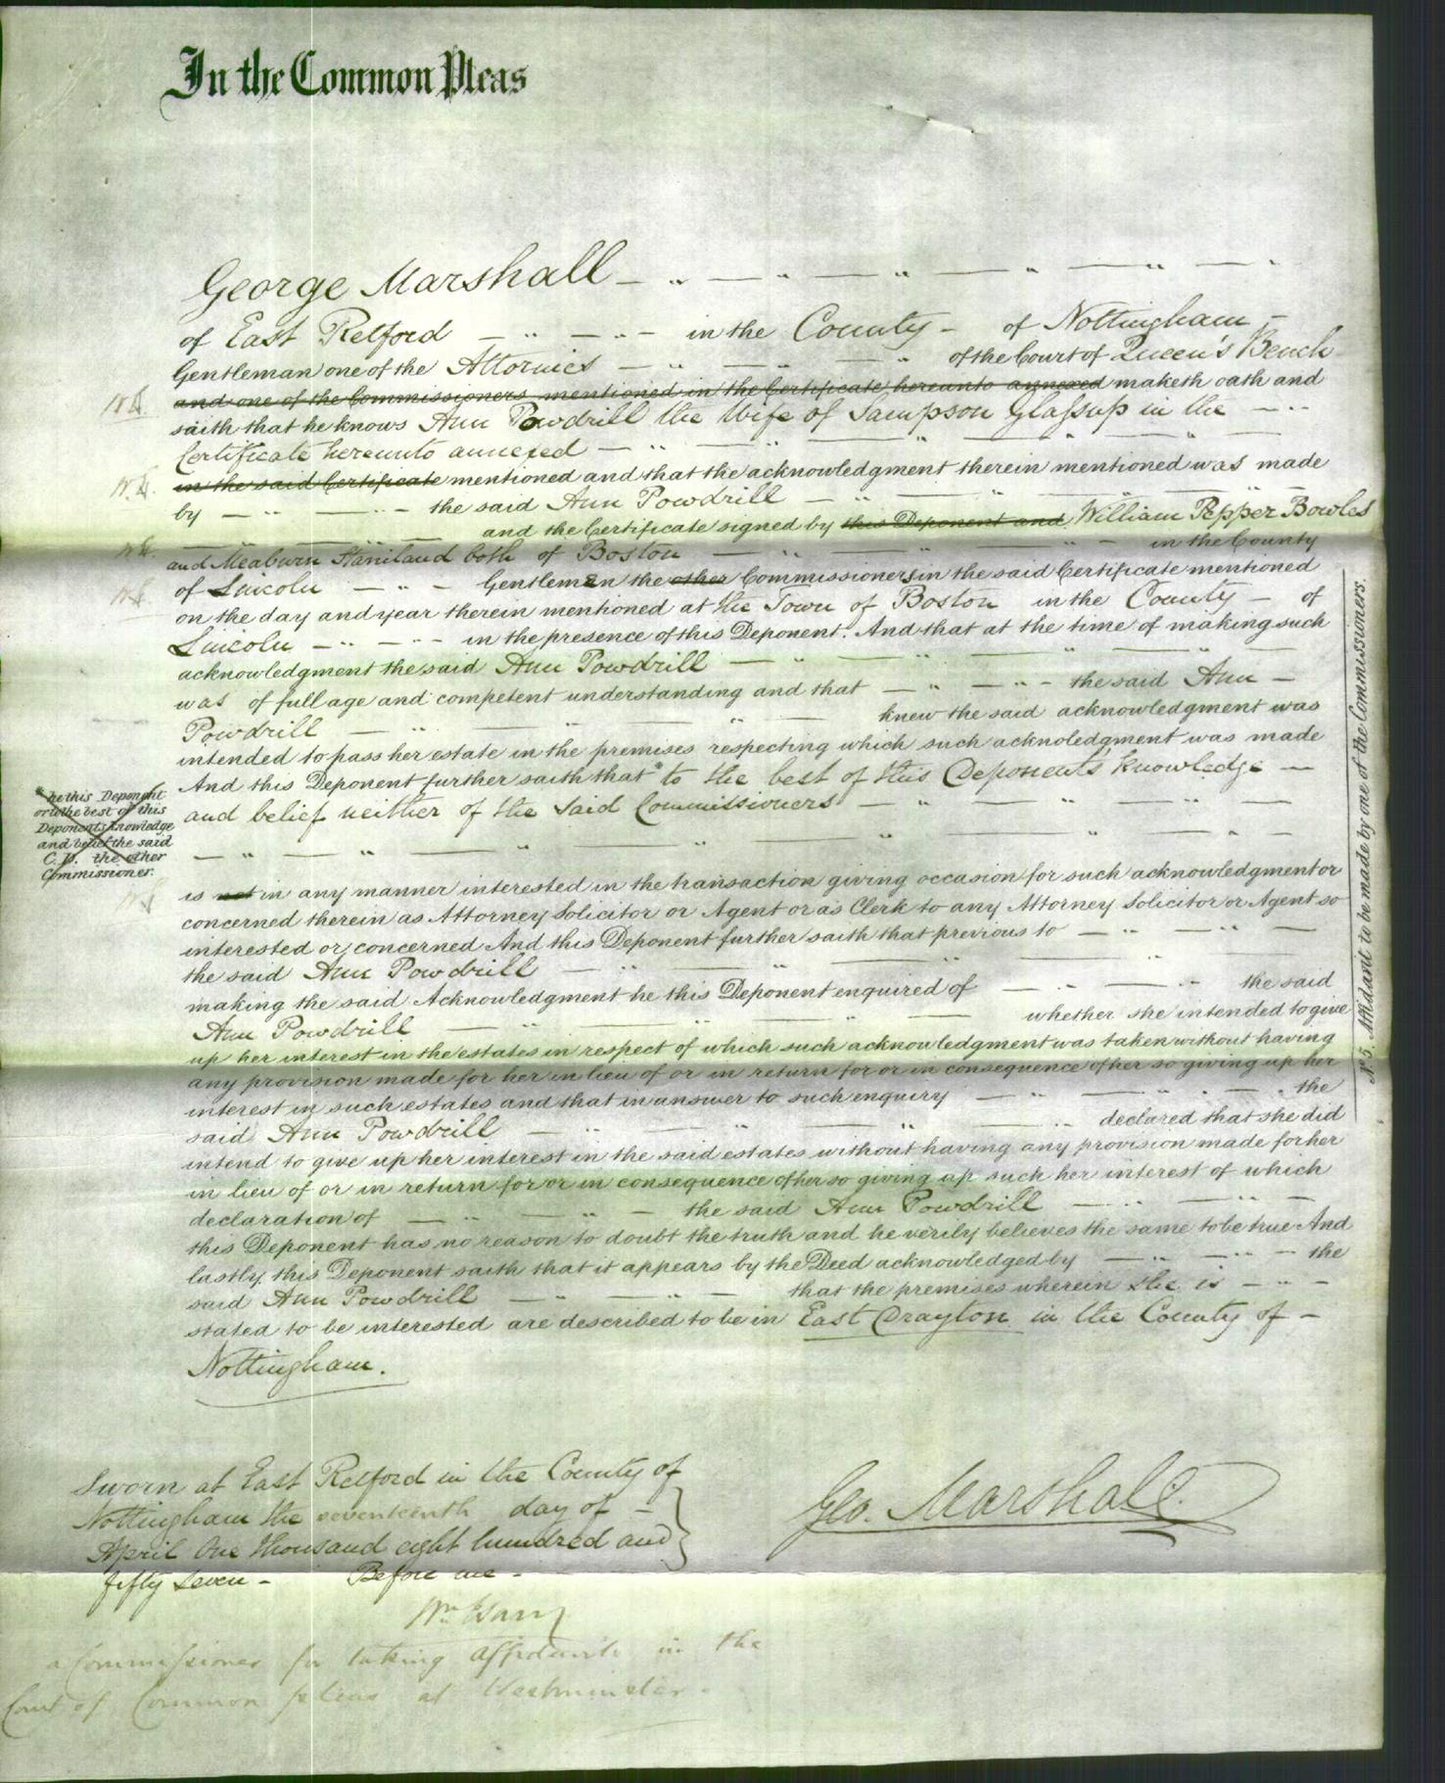 In the Common Pleas
George Marshall
of East Retford in the County of Nottingham
Gentleman one of the Attornies of the Court of Queen's Bench
and one of the Commissioners mentioned in the Certificate hereunto annexed maketh oath and
saith that he knows Ann Powdrill the Wife of Sampson Glassup in the
Certificate hereunto annexed
in the said Certificate mentioned and that the acknowledgment therein mentioned was made
by the said Ann Powdrill
and the Certificate signed by this Deponent and William Pepper Bowles
and Meaburn Staniland both of Boston in the County
of Lincoln Gentlemen the other Commissioners in the said Certificate mentioned
on the day and year therein mentioned at the Town of Boston in the County of
Lincoln in the presence of this Deponent. And that at the time of making such
acknowledgment the said Ann Powdrill
was of full age and competent understanding and that the said Ann
Powdrill knew the said acknowledgment was
intended to pass her estate in the premises respecting which such acknoledgment was made
And this Deponent further saith that * to the best of this Deponents knowledge
and belief neither of the said Commissioners
* he this Deponent
or to the best of this
Deponents knowledge
and belief the said
C.D. the other
Commissioner.
is not in any manner interested in the transaction giving occasion for such acknowledgment or
concerned therein as Attorney Solicitor or Agent or as Clerk to any Attorney Solicitor or Agent so
interested or concerned And this Deponent further saith that previous to
the said Ann Powdrill
making the said Acknowledgment he this Deponent enquired of the said
Ann Powdrill whether she intended to give
up her interest in the estates in respect of which such acknowledgment was taken without having
any provision made for her in lieu of or in return for or in consequence of her so giving up her
interest in such estates and that in answer to such enquiry the
said Ann Powdrill declared that she did
intend to give up her interest in the said estates without having any provision made for her
in lieu of or in return for or in consequence of her so giving up such her interest of which
declaration of the said Ann Powdrill
this Deponent has no reason to doubt the truth and he verily believes the same to be true And
lastly this Deponent saith that it appears by the Deed acknowledged by the
said Ann Powdrill that the premises wherein she is
stated to be interested are described to be in East Drayton in the County of
Nottingham.
No 5. Affidavit to be made by one of the Commissioners.
Sworn at East Retford in the County of
Nottingham the seventeenth day of
April One thousand eight hundred and
fifty seven Before me
Geo. Marshall.
Wm
a Commissioner for taking affidavits in the
Court of Common pleas at Westminster.